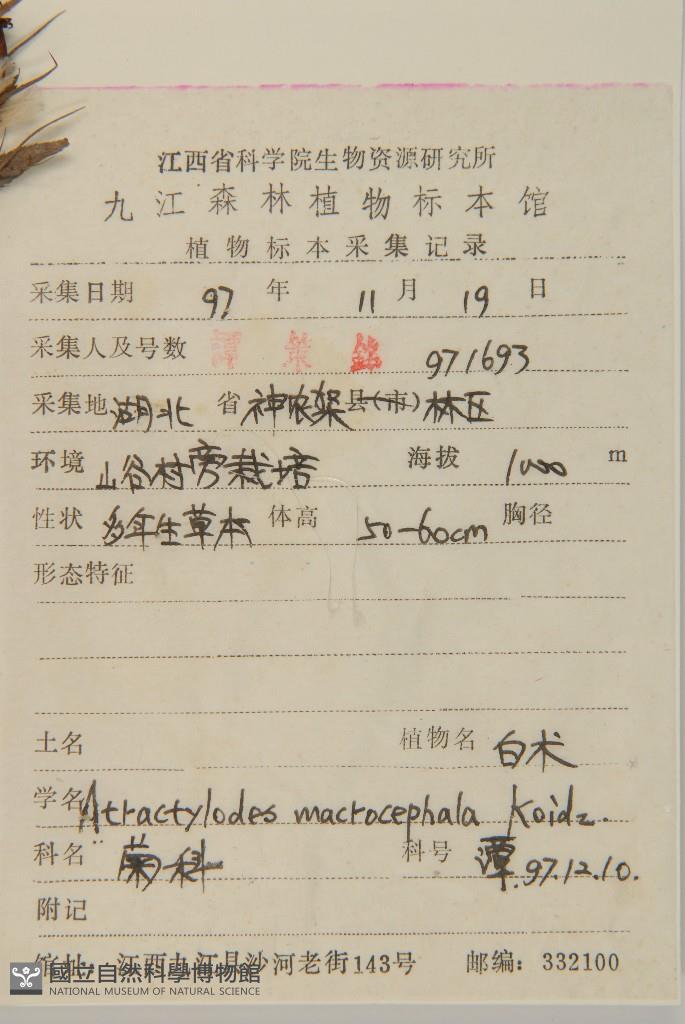 江西省科学院生物资源研究所
九江森林植物标本馆
植物标本采集记录
采集日期 97 年 11 月 19 日
采集人及号数 譚策銘 971693
采集地 湖北 省 神农架 县(市) 林区
环境 山谷村旁栽培 海拔 1000 m
性状 多年生草本 体高 50-60cm 胸径
形态特征
土名 植物名 白术
学名 Atractylodes macrocephala Koidz.
科名 菊科 科号 谭.97.12.10.
附记
馆址: 江西九江县沙河老街143号 邮编: 332100
國立自然科學博物館
NATIONAL MUSEUM OF NATURAL SCIENCE